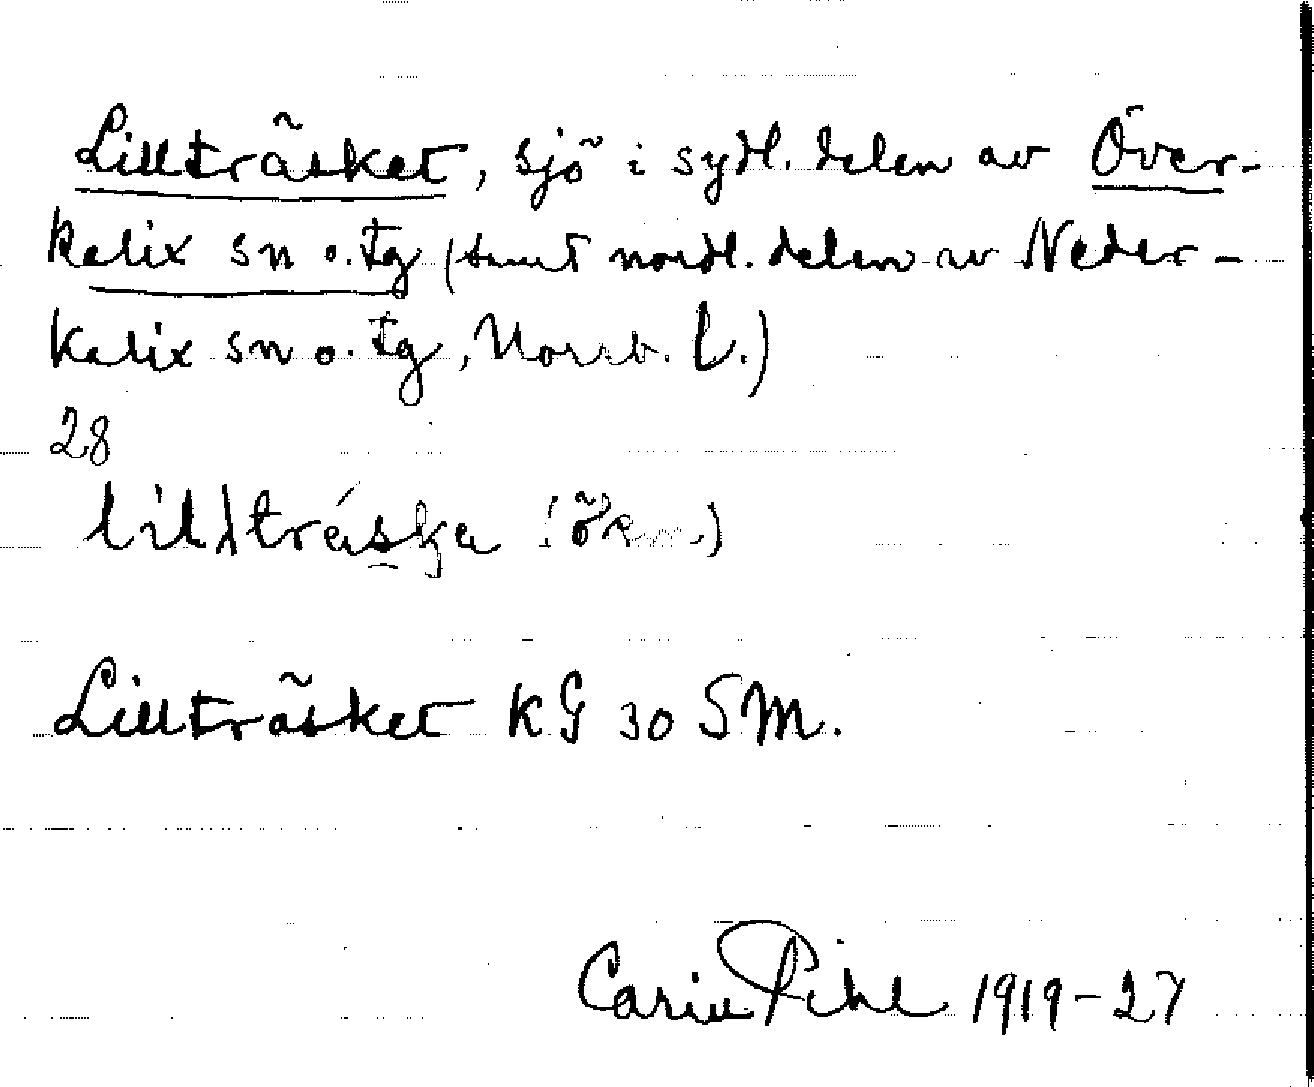 Lillträsket, sjö i sydl. delen av Över-
kalix sn o. tg (samt nordl. delen av Neder-
kalix sn o. tg, Norrb. l.)
28
Lillträsket KG 30 SM.
Carin Pihl 1919-27